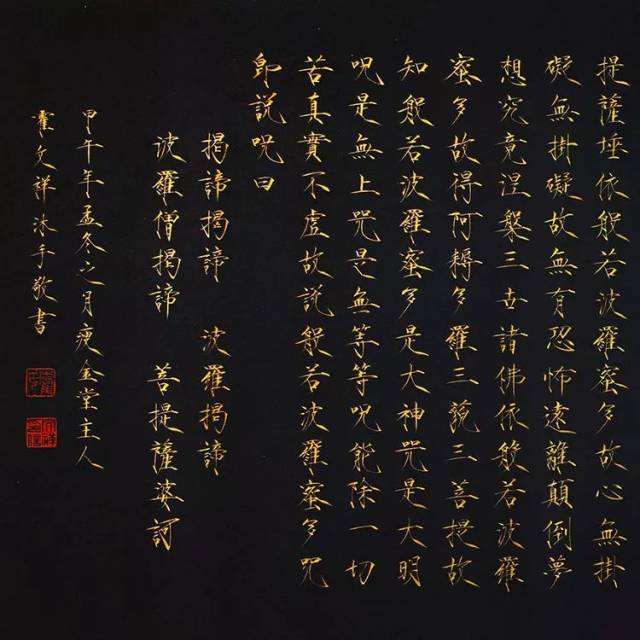 提薩埵依般若波羅蜜多故心無掛
礙無掛礙故無有恐怖遠離顛倒夢
想究竟涅槃三世諸佛依般若波羅
蜜多故得阿耨多羅三藐三菩提故
知般若波羅蜜多是大神咒是大明
呪是無上咒是無等等呪能除一切
苦真實不虛故説般若波羅蜜多咒
即説呪曰
揭諦揭諦 波羅揭諦
波羅僧揭諦 菩提薩婆訶
甲午年孟冬之月瘦金堂主人
文祥沐手敬書